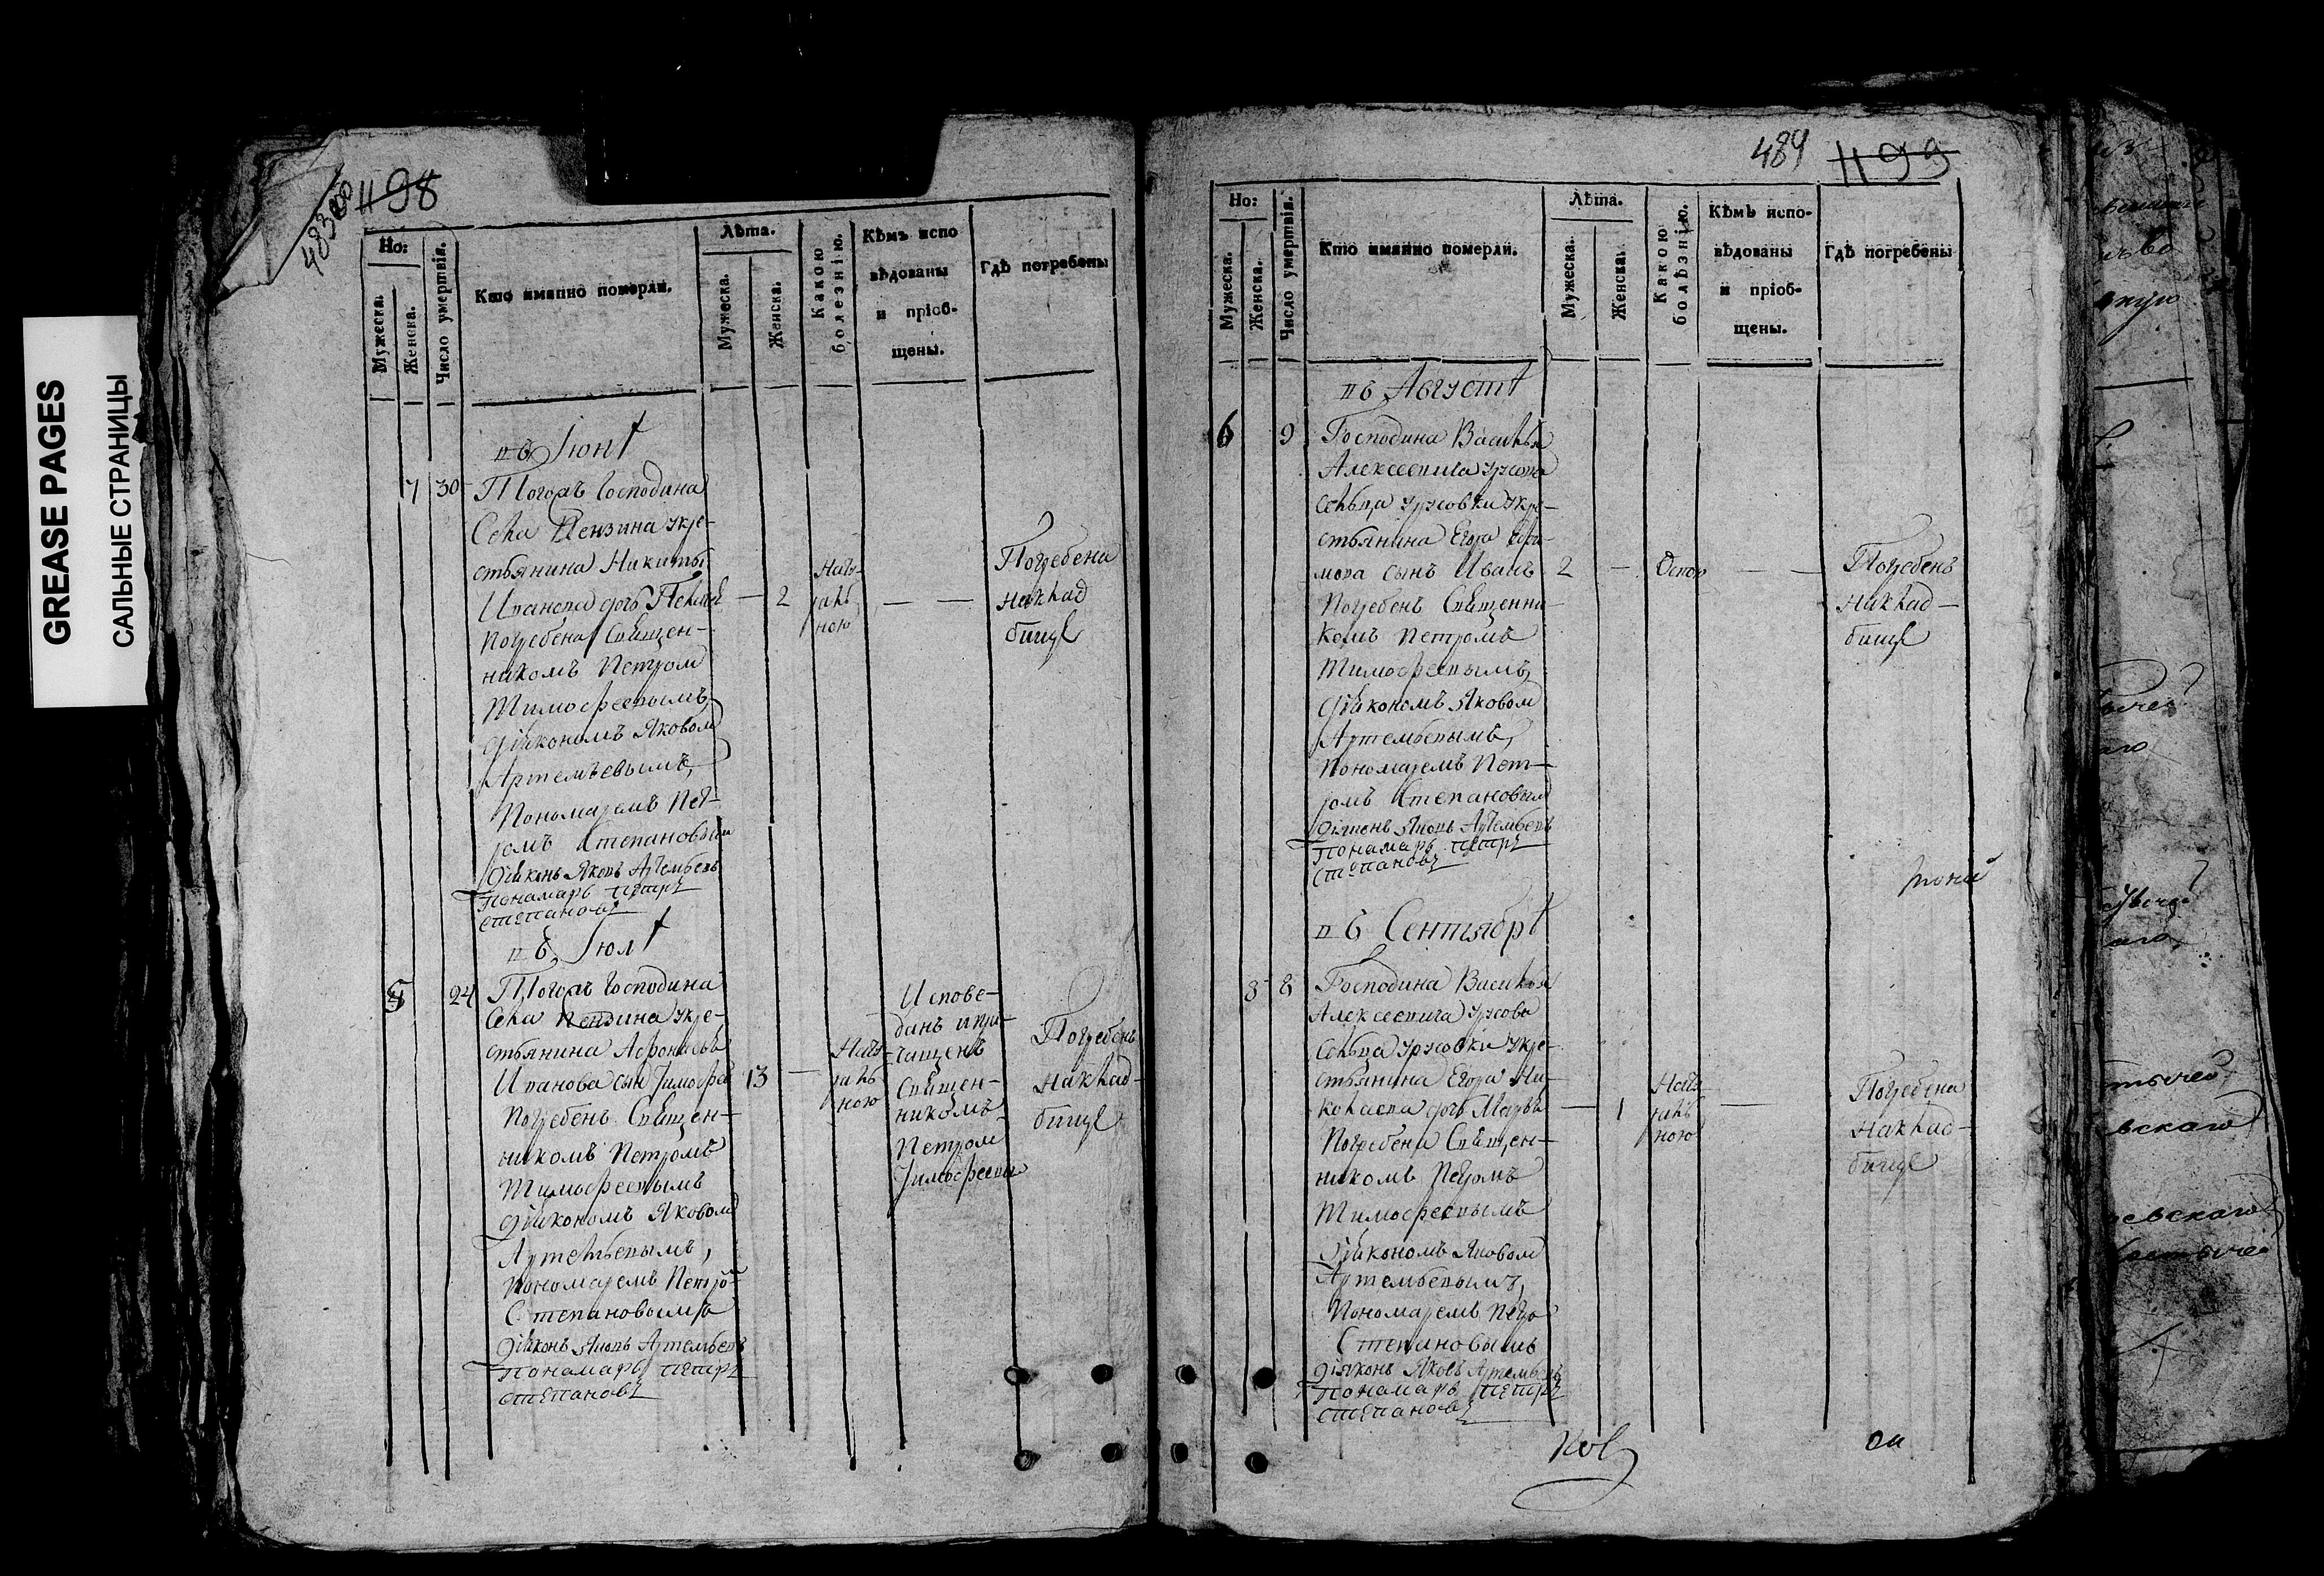 GREASE PAGES
САЛЬНЫЕ СТРАНИЦЫ
483
1198
Но:
Мужеска.
Женска.
Число умертвія.
Кто имянно померли.
Лѣта.
Мужеска.
Женска.
Какою
болезнію.
Кѣмъ испо
вѣдованы
и пріоб-
щены.
Гдѣ погребены
въ Іюнѣ
7 30 Тогожъ Господина
Села Пензина у кре-
стьянина Никиты
Иванова дочь 2
Погребена Священ-
никомъ Петром
Тимофеевымъ
діякономъ Яковом
Артемьевымъ,
Пономаремъ Пет-
ромъ Степановым
Діяконъ Яковъ Артемьевъ
Пономарь Петръ
Степановъ
Нату-
раль
ною
Погребена
на клад
бище
въ Іюлѣ
5 24 Тогожъ Господина
Села Пензина у кре-
стьянина Афонасья
Иванова сын Тимофей 13
Погребенъ Священ-
никомъ Петромъ
Тимофеевымъ
діякономъ Яковом
Артемьевымъ,
Пономаремъ Петро
Степановымъ
Діяконъ Яковъ Артемьевъ
Пономарь Петръ
Степановъ
Нату-
раль
ною
Испове-
данъ и при-
чащенъ
Священ-
никомъ
Петром
Тимофеевы
Погребенъ
на клад-
бище
484
1199
Но:
Мужеска.
Женска.
Число умертвія.
Кто имянно померли.
Лѣта.
Мужеска.
Женска.
Какою
болѣзнію.
Кѣмъ испо-
вѣдованы
и пріоб-
щены.
Гдѣ погребены
въ Августѣ
6 9 Господина Василья
Алексеевича Ужова
Сельца Ужовки у кре-
стьянина Егора
сынъ Иванъ 2 Оспою
Погребенъ Священни-
комъ Петромъ
Тимофеевымъ,
діякономъ Яковом
Артемьевымъ,
Пономаремъ Пет-
ромъ Степановым
Діяконъ Яковъ Артемьевъ
Пономарь Петръ
Степановъ
Погребенъ
на клад-
бище
въ Сентябрѣ
8 8 Господина Василья
Алексеевича Ужова
Сельца Ужовки у кре-
стьянина Егора Ни-
колаева дочь Марья 1
Погребена Священ-
никомъ Петромъ
Тимофеевымъ
Діякономъ Яковом
Артемьевымъ,
Пономаремъ Петро
Степановымъ
Діяконъ Яковъ Артемьевъ
Пономарь Петръ
Степановъ
Нату-
раль
ною
Погребена
на клад-
бище